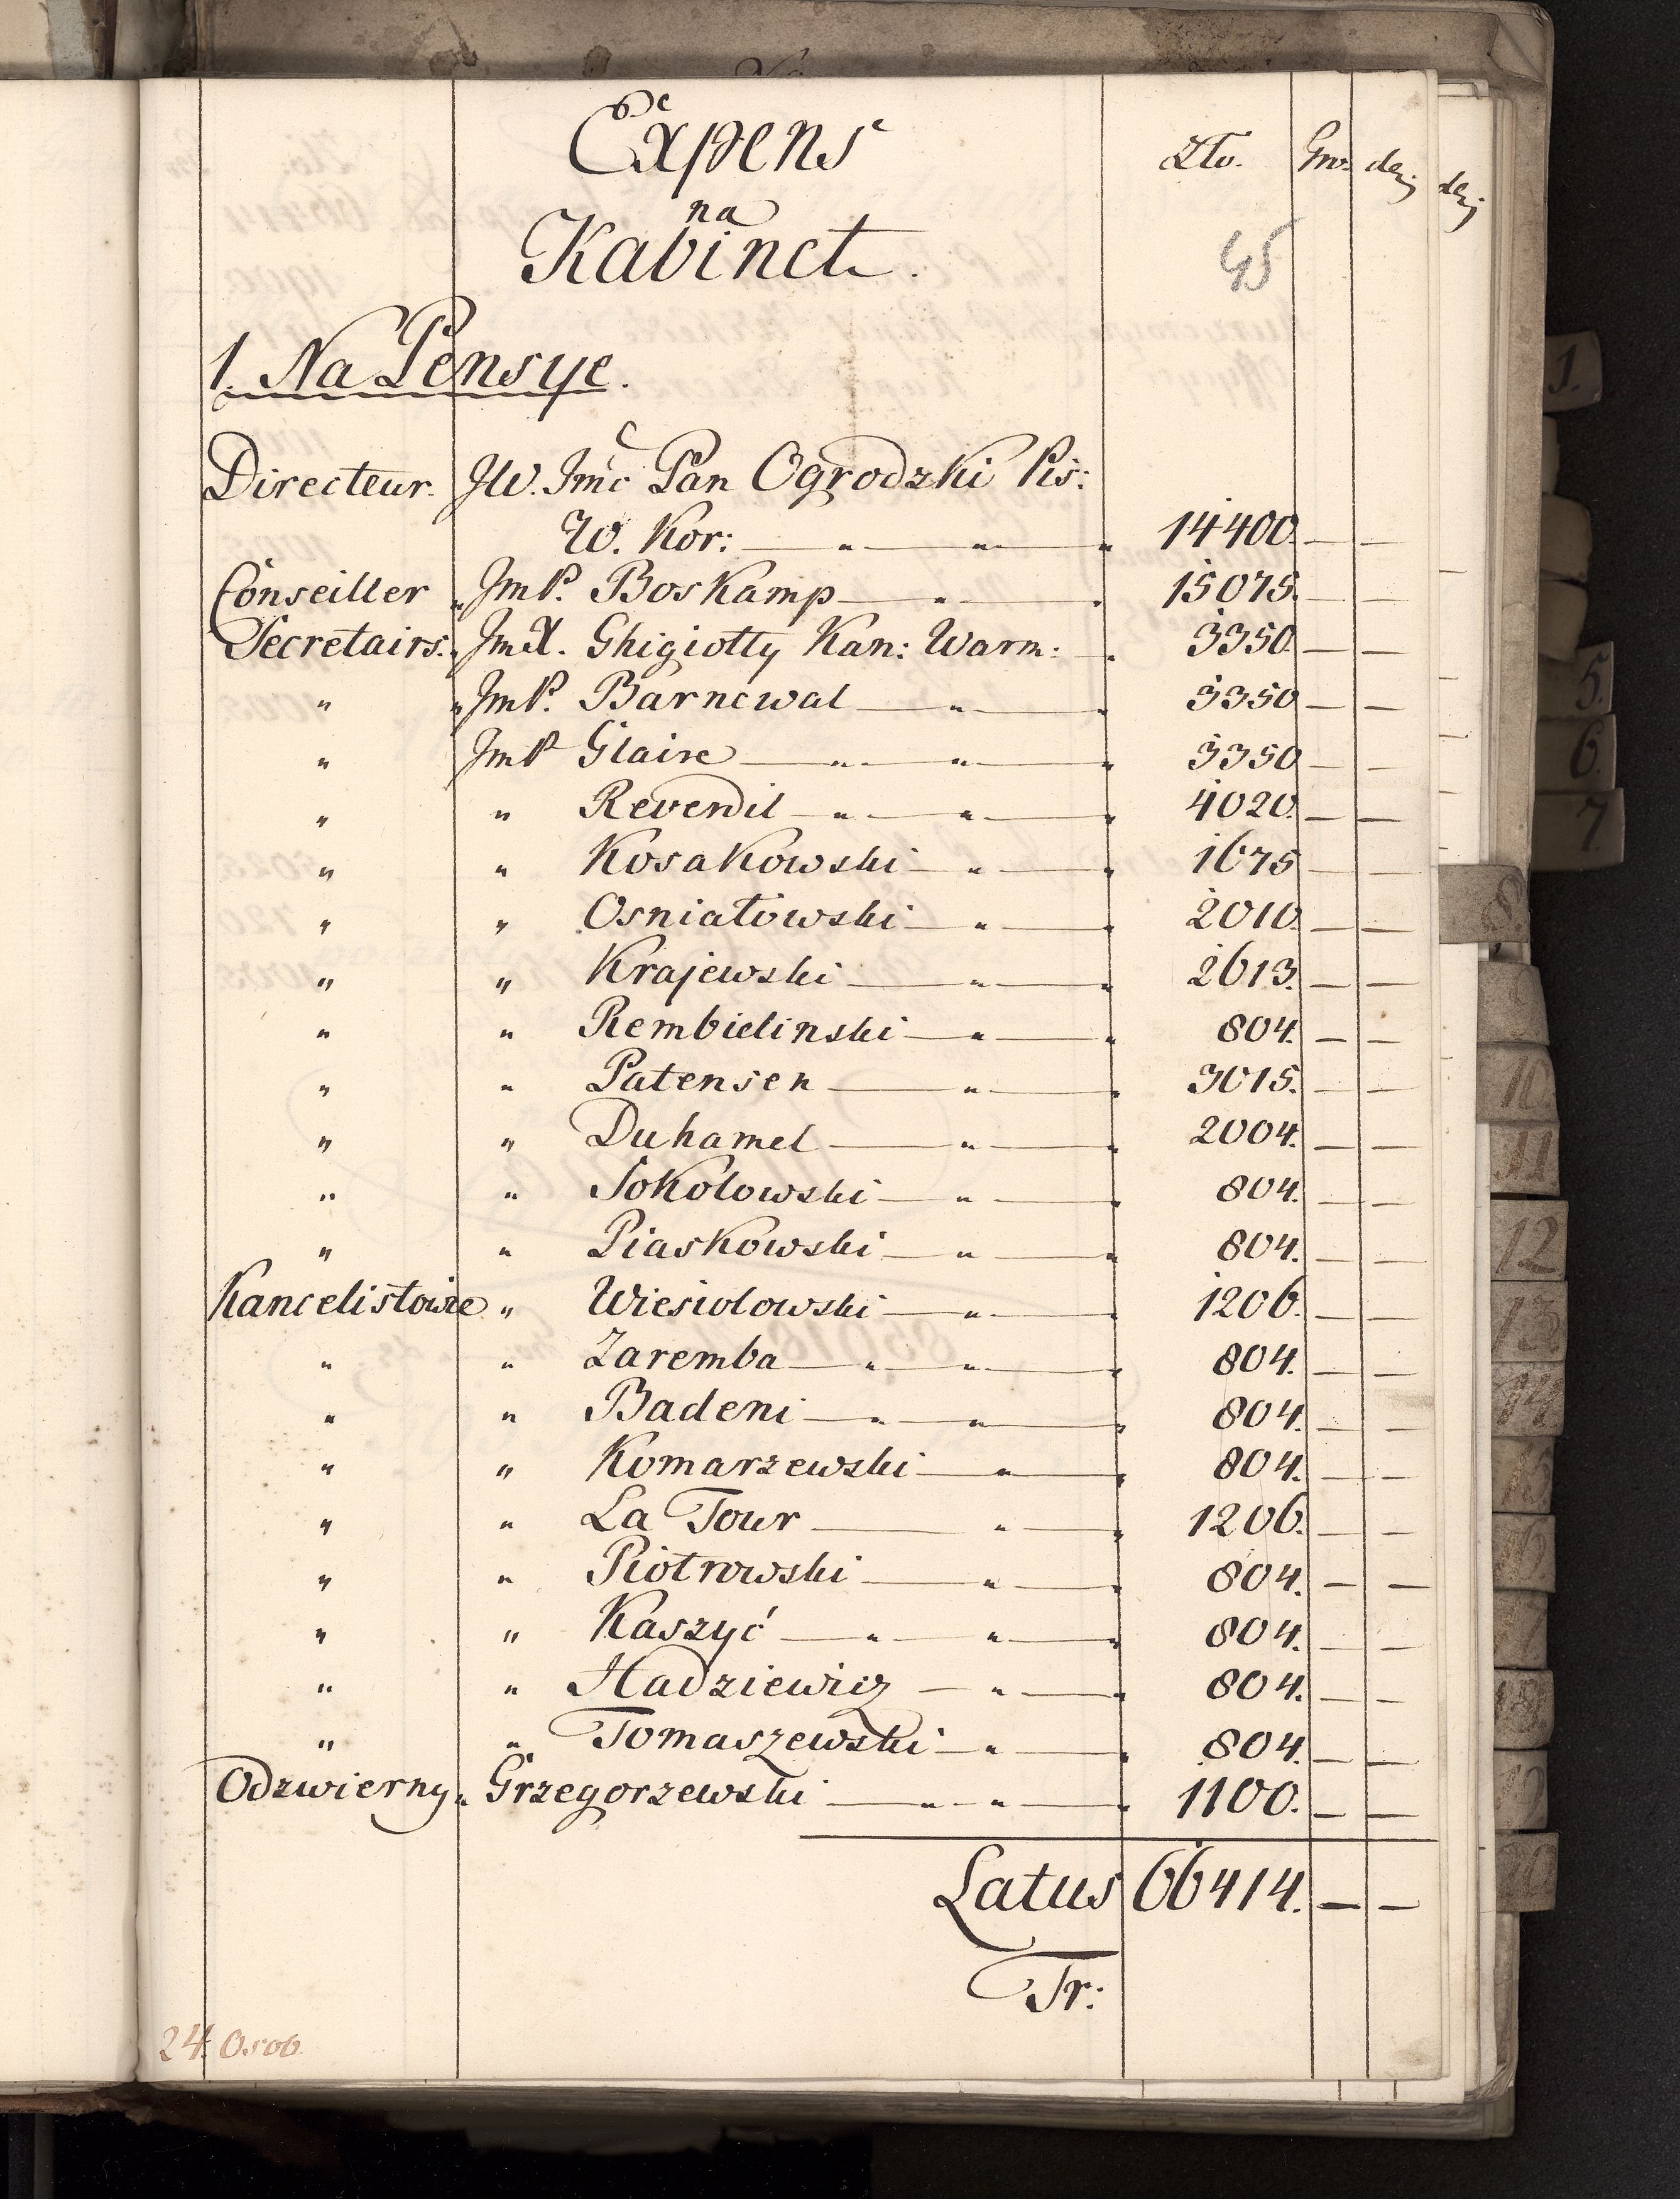 Expens
na
Kabinet.
Zło. Gro. den den
45
1. Na Pensye.
Directeur. JW. Jmć Pan Ogrodzki Pis:
W. Kor: — „ — „ — „ 14400. — —
Conseiller „ JmP. Boskamp — „ — „ 15075. — —
Secretairs. „ JmX. Ghigiotty Kan: Warm: — „ 3350. — —
„ „ JmP. Barnewal — „ — „ 3350 — —
„ JmP Glaire — „ — „ — „ 3350 — —
„ „ Reverdil — „ — „ — „ 4020. — —
„ „ Kosakowski — „ — „ 1675 — —
„ „ Osniałowski — „ — „ 2010. — —
„ „ Krajewski — „ — „ 2613. — —
„ „ Rembielinski — „ — „ 804. — —
„ „ Patensen — „ — „ 3015. — —
„ „ Duhamel — „ — „ 2004. — —
„ „ Sokolowski — „ — „ 804. — —
„ „ Piaskowski — „ — „ 804. — —
Kancelistowie „ Wiesiolowski — „ — „ 1206. — —
„ „ Zaremba — „ — „ — „ 804. — —
„ „ Badeni — „ — „ — „ 804. — —
„ „ Komarzewski — „ — „ 804. — —
„ „ La Tour — „ — „ 1206. — —
„ „ Piotrowski — „ — „ 804. — —
„ „ Kaszyć — „ — „ — „ 804. — —
„ „ Hadziewicz — „ — „ 804. — —
„ „ Tomaszewski — „ — „ 804. — —
Odzwierny „ Grzegorzewski — „ — „ — „ 1100. — —
Latus 66414. — —
Tr:
24. Osob.
1.
5.
6.
7.
8.
10.
11
12
13
14
15
16
17
18
19
20